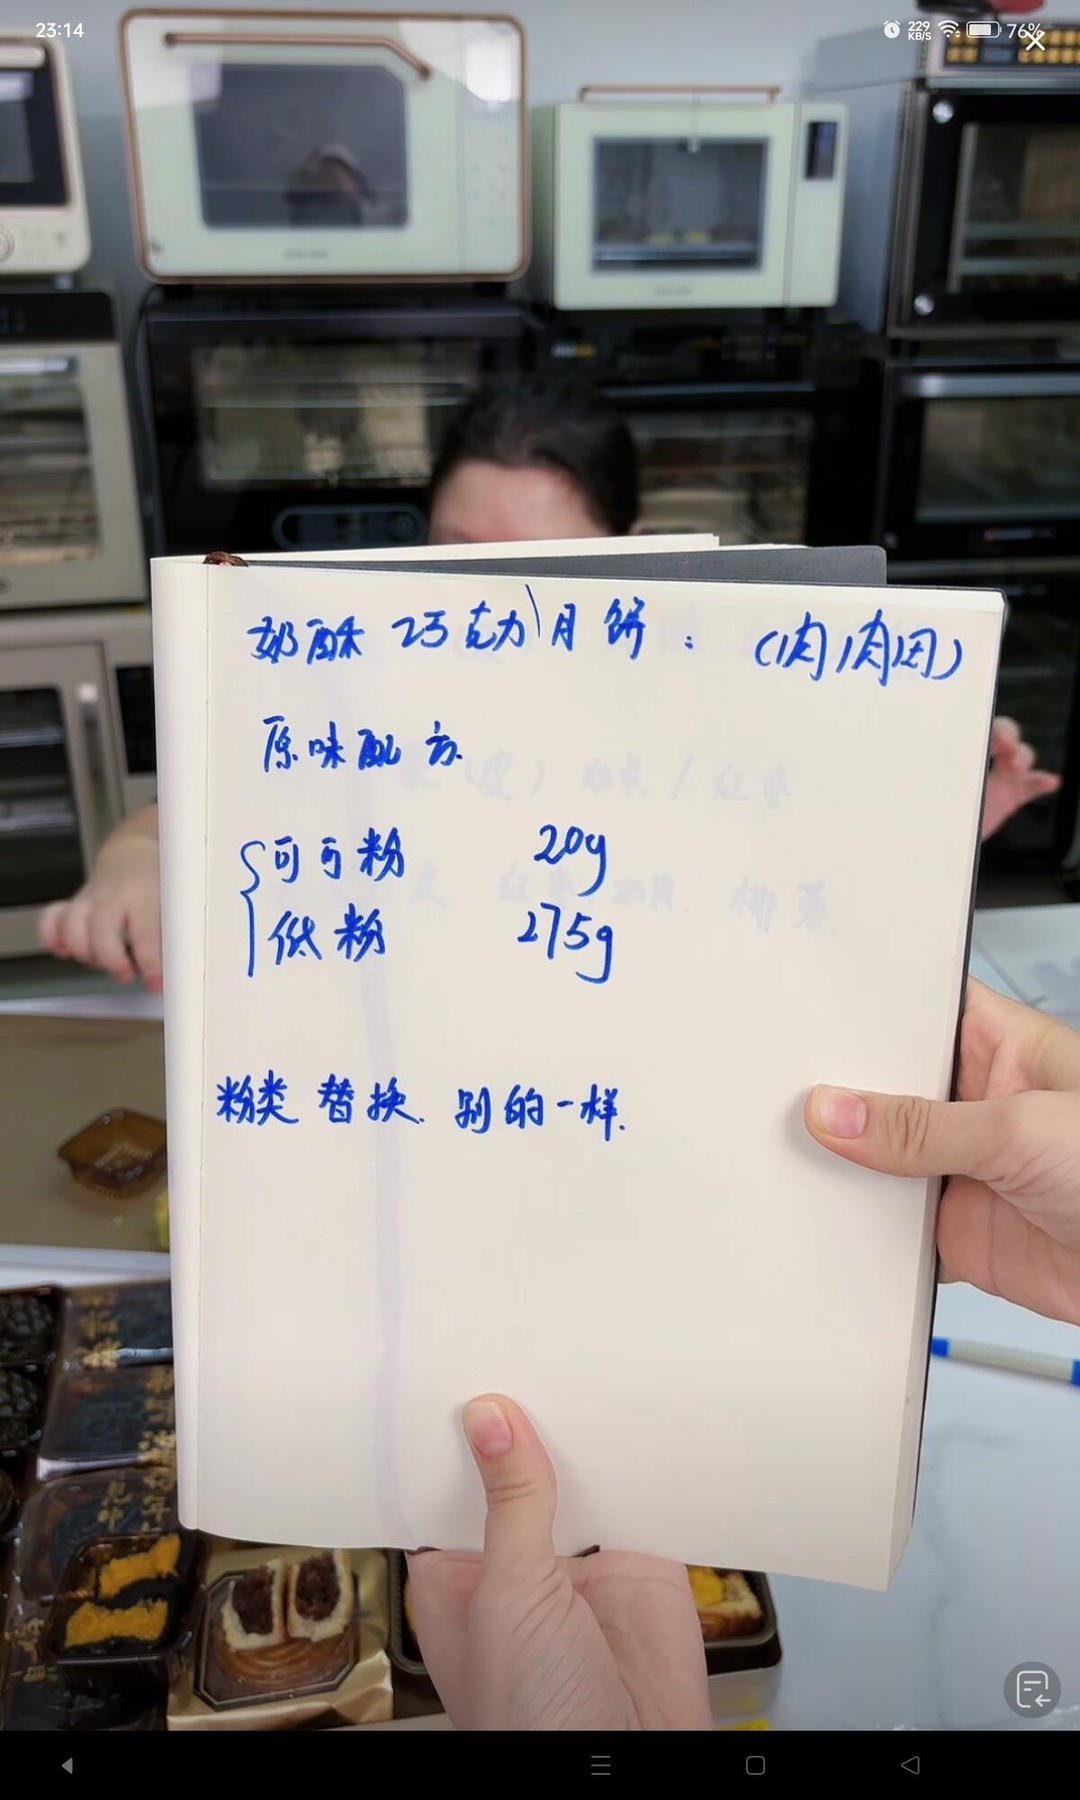 23:14
229 KB/S
76%
奶酥巧克力月饼：（肉肉团）
原味配方
可可粉 20g
低粉 275g
粉类替换.别的一样.